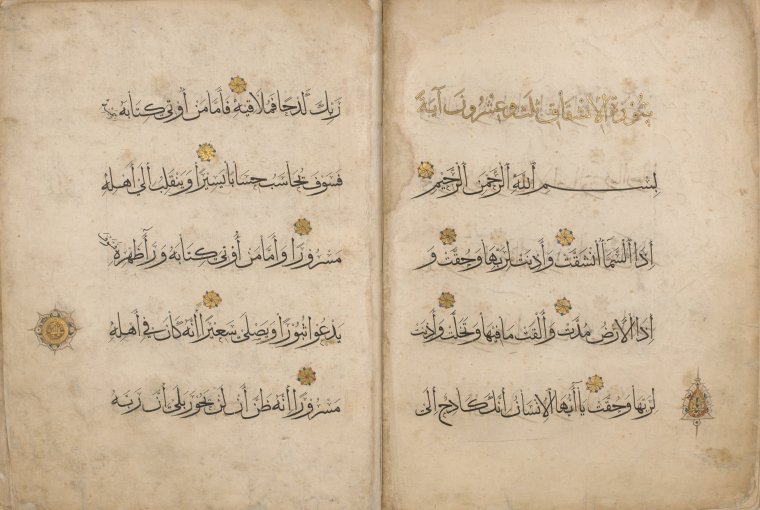 سورة الانشقاق ثلث وعشرون آية
بسم الله الرحمن الرحيم
إذا السماء انشقت وأذنت لربها وحقت و
إذا الأرض مدت وألقت ما فيها وتخلت وأذنت
لربها وحقت يا أيها الإنسان إنك كادح إلى
ربك كدحا فملاقيه فأما من أوتي كتابه
فسوف يحاسب حسابا يسيرا وينقلب إلى أهله
مسرورا وأما من أوتي كتابه وراء ظهره
يدعوا ثبورا ويصلى سعيرا إنه كان في أهله
مسرورا إنه ظن أن لن يحور بلى إن ربه